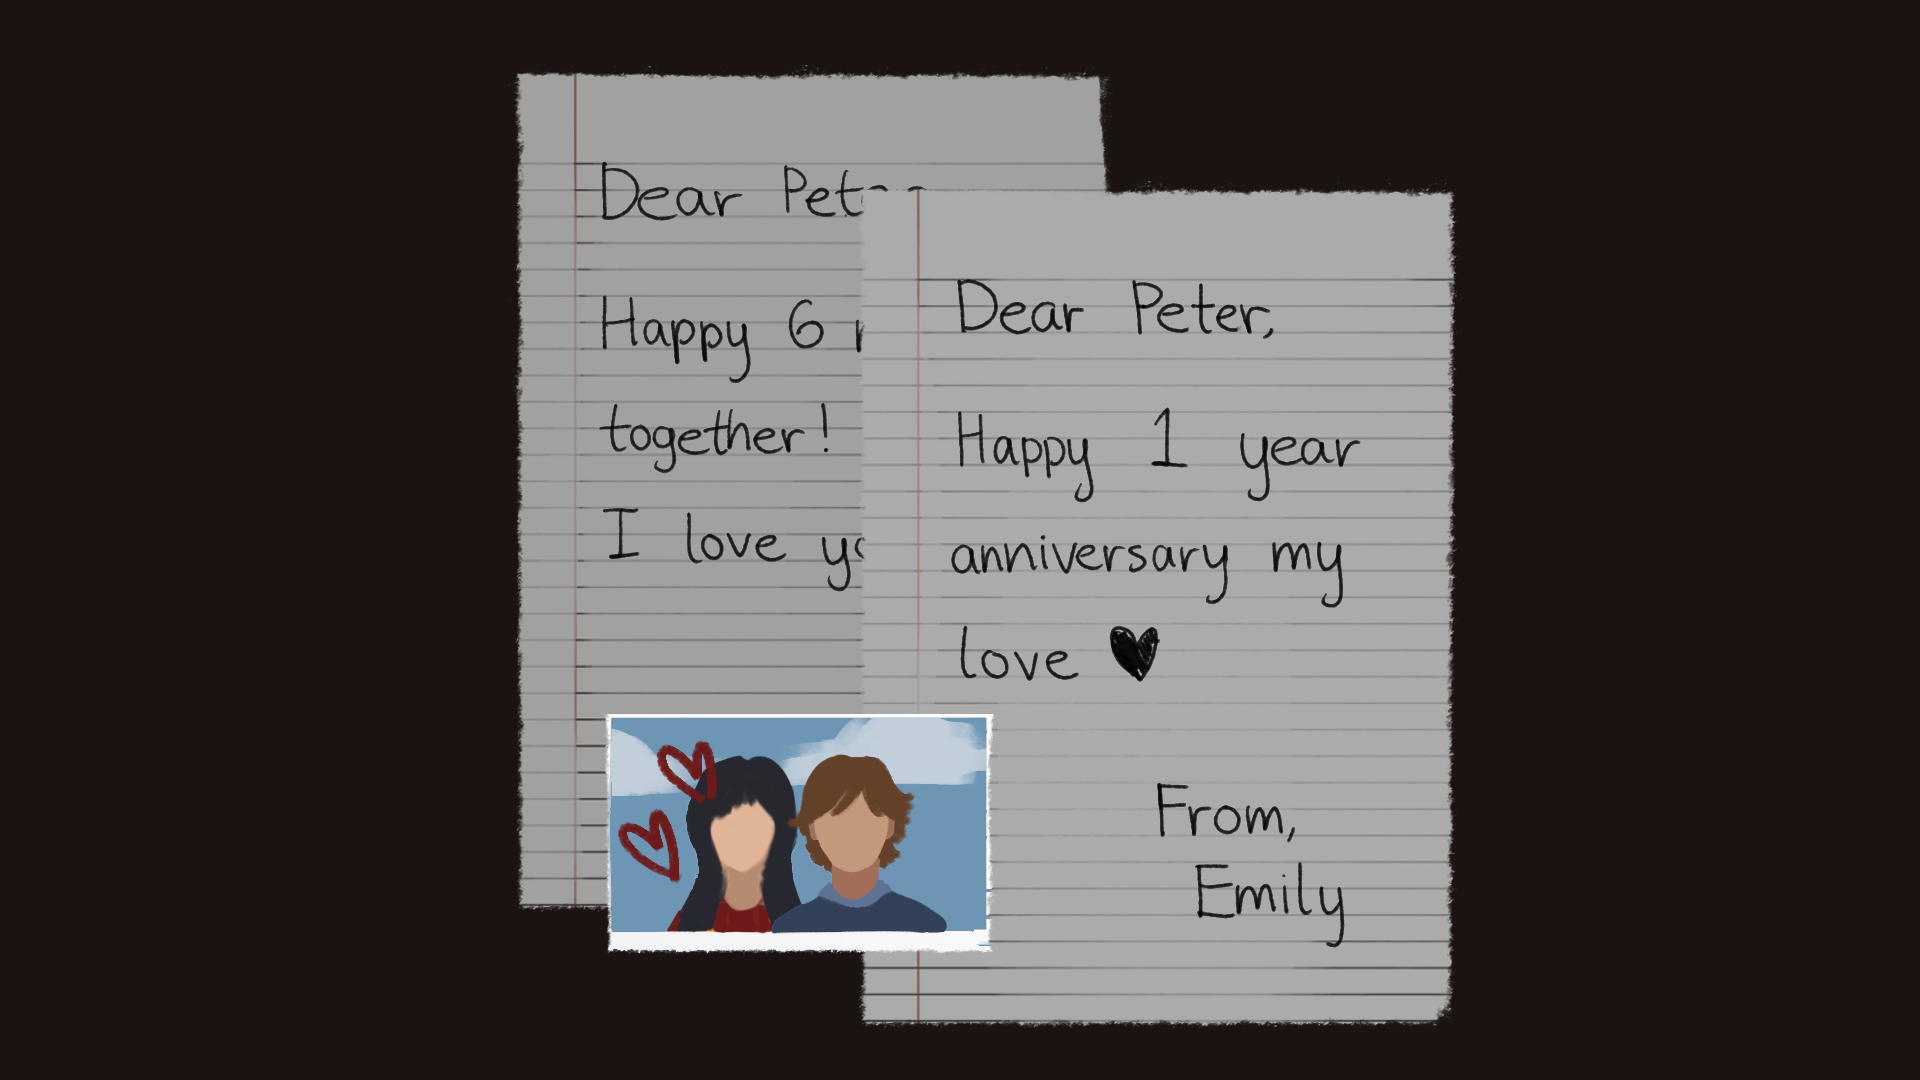 Dear
Happy 6
together!
I love
Dear Peter,
Happy 1 year
anniversary my
love ♥
From,
Emily